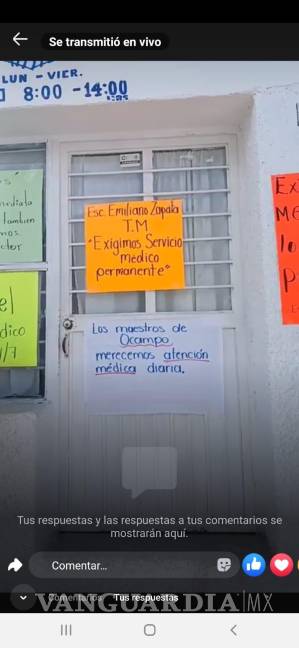 Se transmitió en vivo
LUN - VIER.
8:00 - 14:00
HRS
Esc. Emiliano Zapata
T.M
"Exigimos Servicio
medico
permanente"
Los maestros de
Ocampo
merecemos atención
médica diaria.
también
Ex
Tus respuestas y las respuestas a tus comentarios se
mostrarán aquí.
Comentar...
Comentarios
Tus respuestas
VANGUARDIA|MX